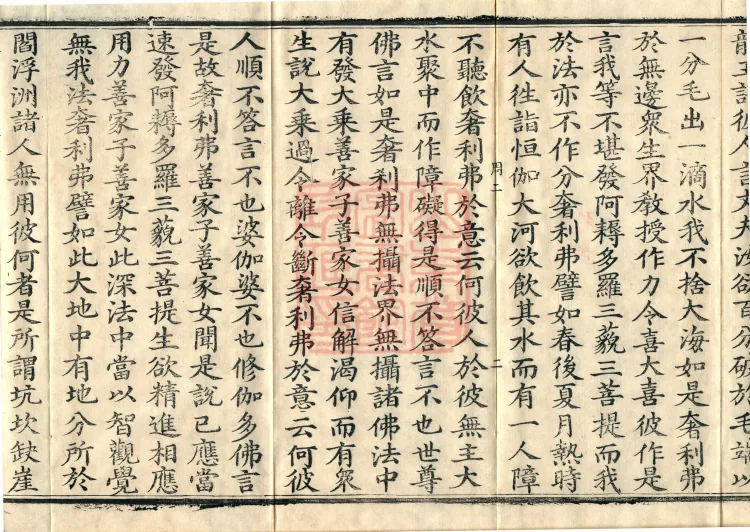 龍王語彼人言丈夫汝欲百分破於毛端以
一分毛出一滴水我不捨大海如是奢利弗
於無邊衆生界教授作力令喜大喜彼作是
言我等不堪發阿耨多羅三藐三菩提而我
於法亦不作分奢利弗譬如春後夏月熱時
有人往詣恒伽大河欲飲其水而有一人障
周二
二
不聽飲奢利弗於意云何彼人於彼無主大
水聚中而作障礙得是順不答言不也世尊
佛言如是奢利弗無攝法界無攝諸佛法中
有發大乘善家子善家女信解渴仰而有衆
生說大乘過令離令斷奢利弗於意云何彼
人順不答言不也婆伽婆不也修伽多佛言
是故奢利弗善家子善家女聞是說已應當
速發阿耨多羅三藐三菩提生欲精進相應
用力善家子善家女此深法中當以智觀覺
無我法奢利弗譬如此大地中有地分所於
閻浮洲諸人無用彼何者是所謂坑坎缺崖